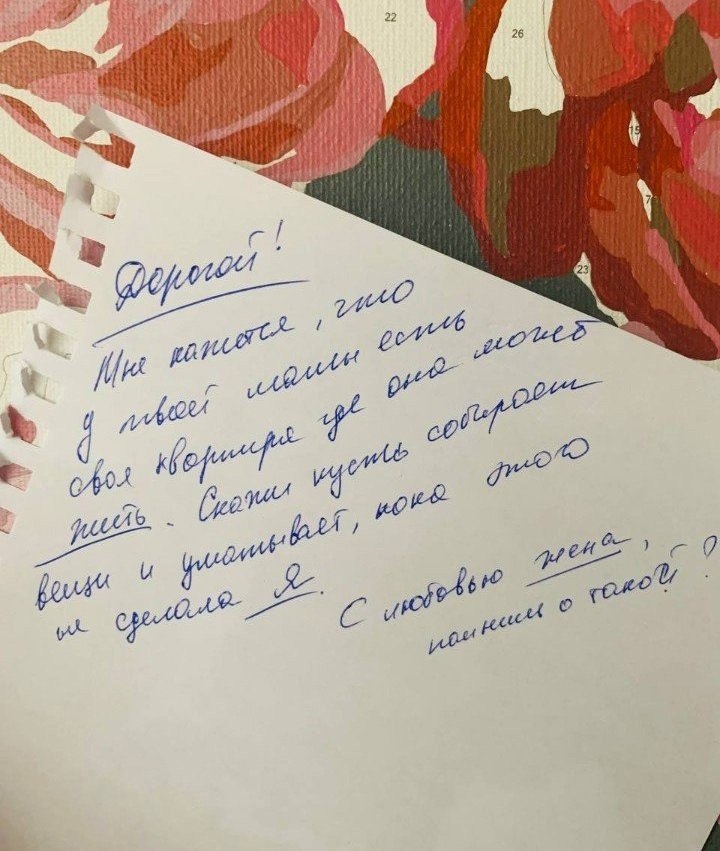 22
26
15
7
23
Дорогой!
Мне кажется, что
у твоей мамы есть
своя квартира где она может
жить. Скажи пусть собирает
вещи и уматывает, пока этого
не сделала Я.
С любовью жена,
помнишь о такой?